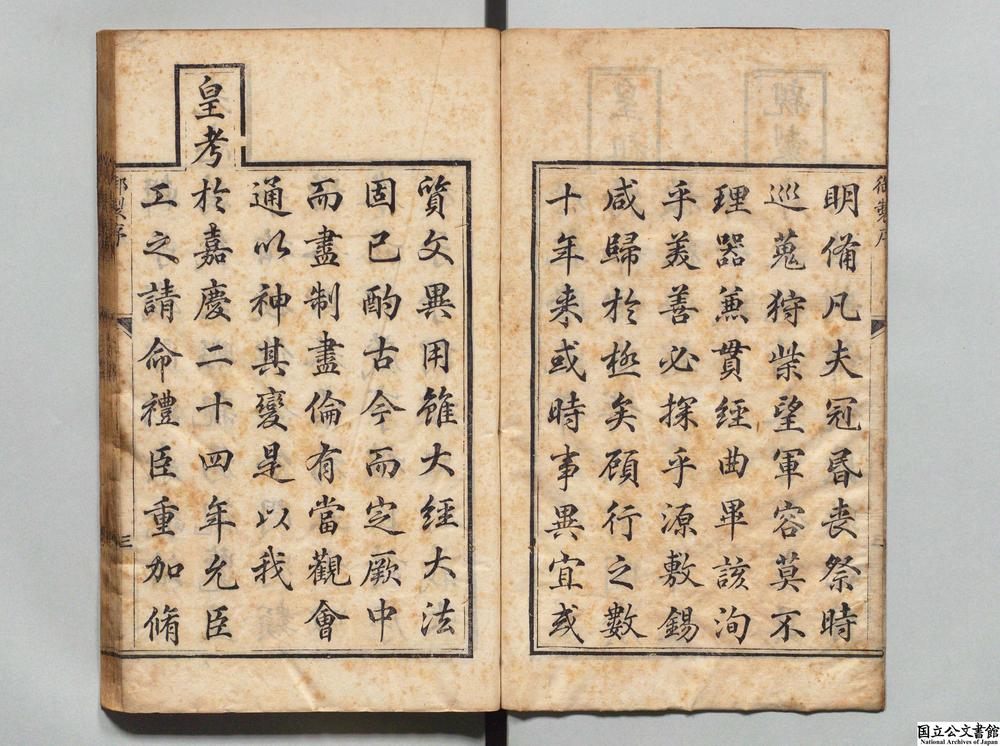 御製序
明備凡夫冠昏喪祭時
巡蒐狩柴望軍容莫不
理器兼貫經曲畢該洵
乎美善必探乎源敷錫
咸歸於極矣顧行之數
十年来或時事異宜或
質文異用雖大經大法
固已酌古今而定厥中
而盡制盡倫有當觀會
通以神其變是以我
皇考於嘉慶二十四年允臣
工之請命禮臣重加脩
御製序
三
国立公文書館
National Archives of Japan